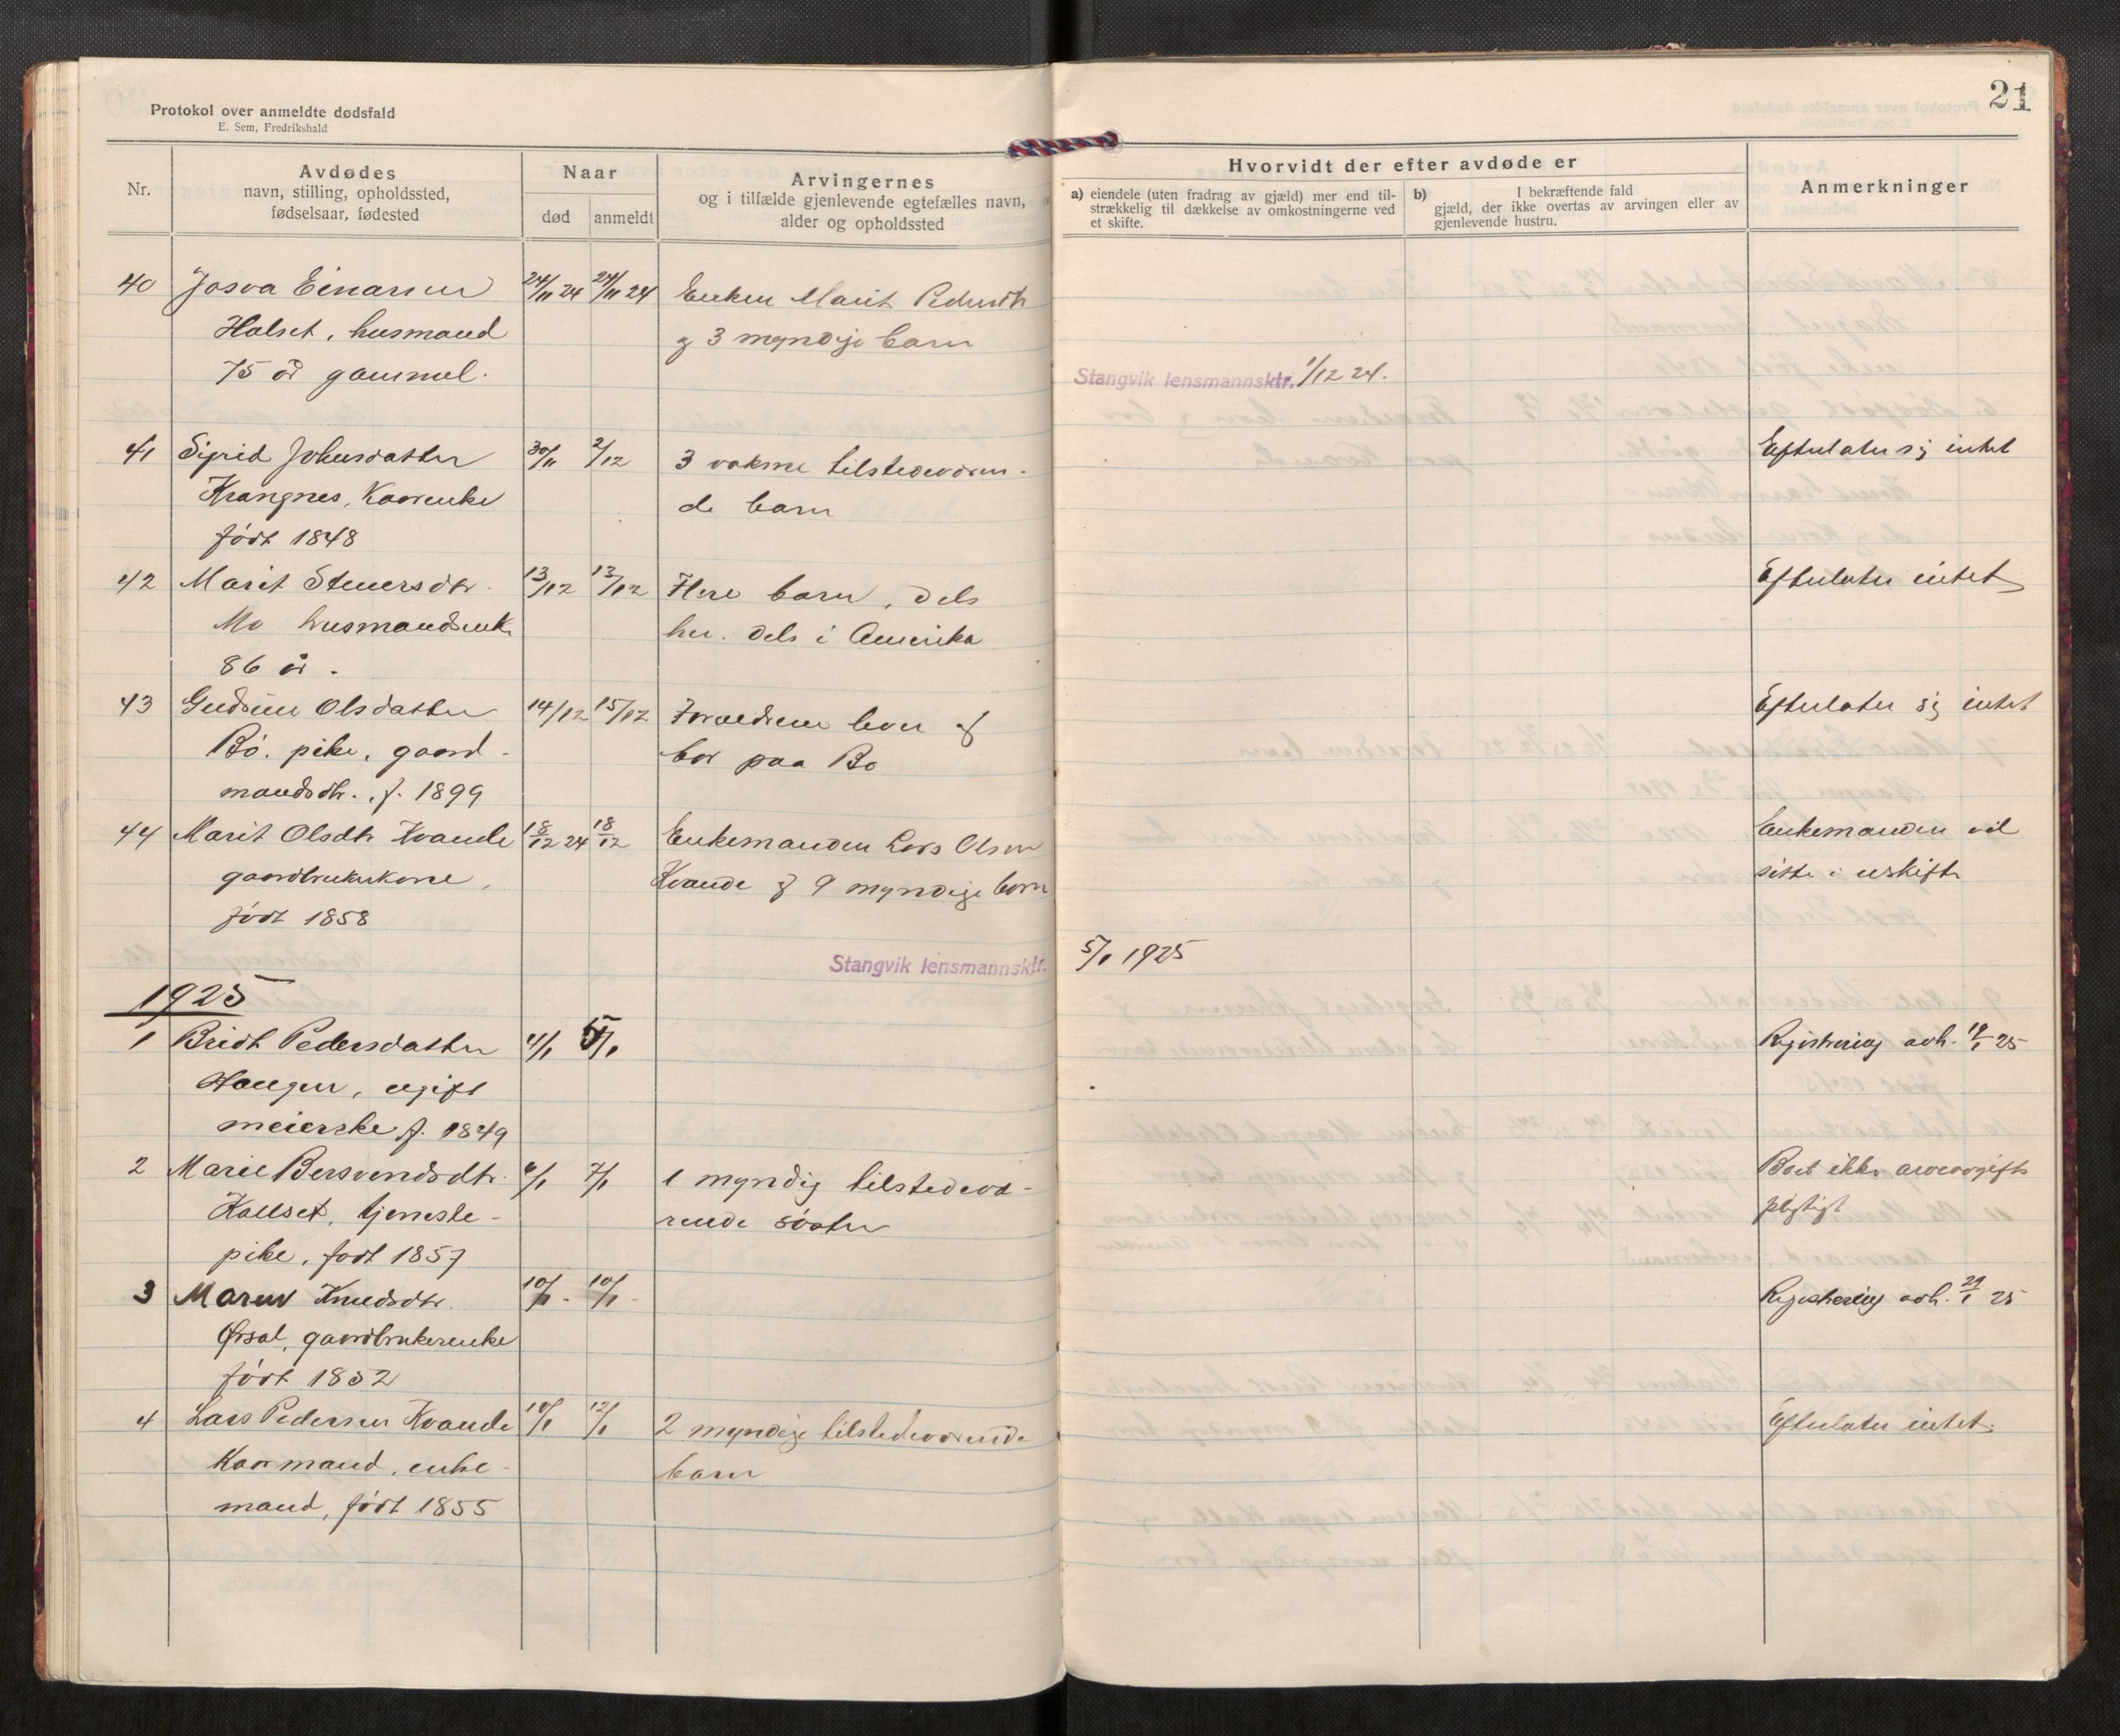 Protokol over anmeldte dødsfald
E. Sem, Fredrikshald
21
Nr.
Avdødes
navn, stilling, opholdssted,
fødselsaar, fødested
Naar
død
anmeldt
Arvingernes
og i tilfælde gjenlevende egtefælles navn,
alder og opholdssted
Hvorvidt der efter avdøde er
a) eiendele (uten fradrag av gjæld) mer end til-
strækkelig til dækkelse av omkostningerne ved
et skifte.
b) I bekræftende fald
gjæld, der ikke overtas av arvingen eller av
gjenlevende hustru.
Anmerkninger
40 Josva Einarsen 24/11 24 24/11 24 Enken Marit Pedersdtr
Halset, husmand og 3 myndige barn
75 år gammel.
Stangvik lensmannsktr. 1/12 24.
41 Sigrid Johnsdatter 30/11 2/12 3 voksne tilstedeværen- Efterlater sig intet
Krangnes, Kaarenke de barn
født 1848
42 Marit Steuersdtr. 13/12 13/12 Flere barn, dels Efterlater intet
Mo husmandsenke her. dels i Amerika
86 år.
43 Gudrun Olsdatter 14/12 15/12 Forældrene lever og Efterlater sig intet
Bö. pike, gaard- bor paa Bö
mandsdtr. f. 1899
44 Marit Olsdtr Kvande 18/12 24 18/12 Enkemanden Lars Olsen Enkemanden vil
gaardbrukerkone, Kvande og 9 myndige barn sitte i uskifte
født 1858
Stangvik lensmannsktr. 5/1 1925
1925
1 Bridt Pedersdatter 4/1 5/1 Registrering avh. 19/1 25
Haugen, ugift
meierske f. 1849
2 Marie Bersvendsdtr. 6/1 7/1 1 myndig tilstedevæ- Boet ikke arveavgifts
Kallset, tjeneste- rende söster pligtigt
pike, født 1857
3 Maren Knudsdtr. 10/1 - 10/1 - Registrering avh. 21/1 25
Ørsal, gaardbrukerenke
født 1852
4 Lars Pedersen Kvande 10/1 12/1 2 myndige tilstedeværende Efterlater intet.
Kaarmand, enke- barn
mand, født 1855